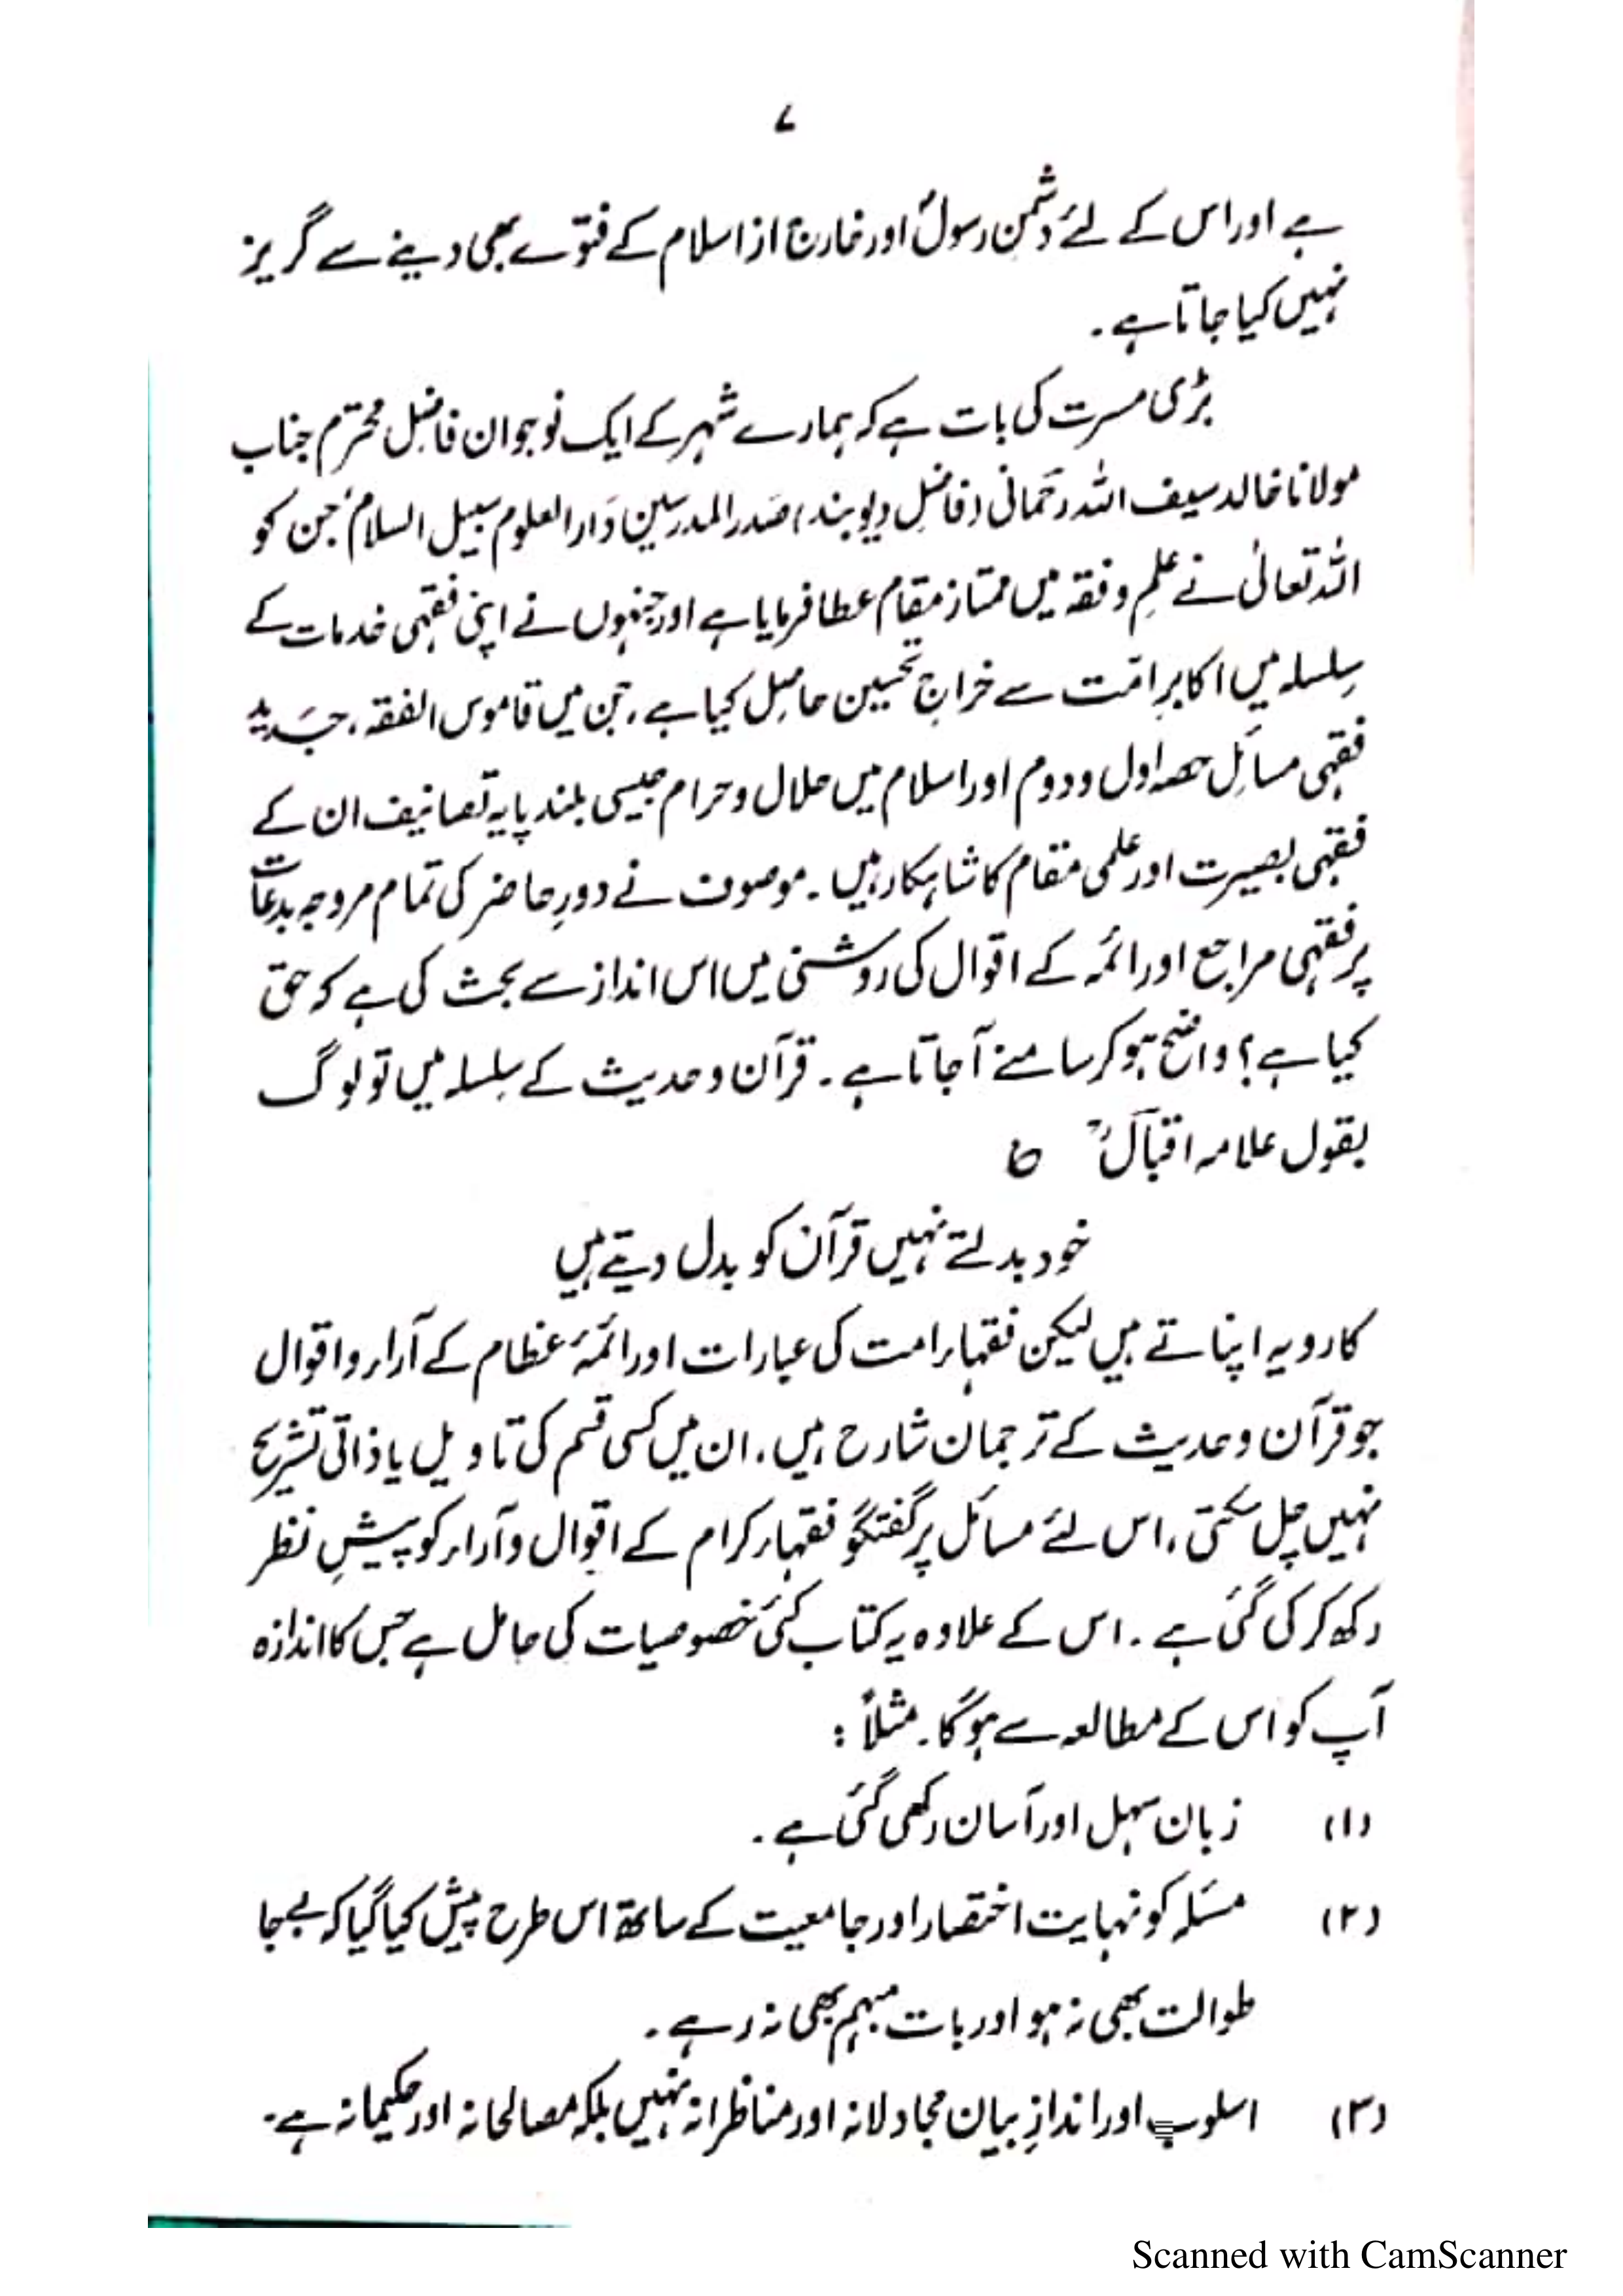 ۷
ہے اور اس کے لئے دشمن رسولؐ اور خارج از اسلام کے فتوے بھی دینے سے گریز
نہیں کیا جاتا ہے۔
بڑی مسرت کی بات ہے کہ ہمارے شہر کے ایک نوجوان فاضل محترم جناب
مولانا خالد سیف اللہ رحمانی (فاضل دیوبند) صدر المدرسین دار العلوم سبیل السلام، جن کو
اللہ تعالیٰ نے علم و فقہ میں ممتاز مقام عطا فرمایا ہے اور جنہوں نے اپنی فقہی خدمات کے
سلسلہ میں اکابرِ امت سے خراجِ تحسین حاصل کیا ہے، جن میں قاموس الفقہ، جدید
فقہی مسائل حصہ اول و دوم اور اسلام میں حلال و حرام جیسی بلند پایہ تصانیف ان کے
فقہی بصیرت اور علمی مقام کا شاہکار ہیں۔ موصوف نے دورِ حاضر کی تمام مروجہ بدعات
پر فقہی مراجع اور ائمہ کے اقوال کی روشنی میں اس انداز سے بحث کی ہے کہ حق
کیا ہے؟ واضح ہو کر سامنے آ جاتا ہے۔ قرآن و حدیث کے سلسلہ میں تو لوگ
بقول علامہ اقبالؒ ؏
خود بدلتے نہیں قرآن کو بدل دیتے ہیں
کا رویہ اپناتے ہیں لیکن فقہاء امت کی عبارات اور ائمۂ عظام کے آراء و اقوال
جو قرآن و حدیث کے ترجمان شارح ہیں، ان میں کسی قسم کی تاویل یا ذاتی تشریح
نہیں چل سکتی، اس لئے مسائل پر گفتگو فقہاء کرام کے اقوال و آراء کو پیشِ نظر
رکھ کر کی گئی ہے۔ اس کے علاوہ یہ کتاب کئی خصوصیات کی حامل ہے جس کا اندازہ
آپ کو اس کے مطالعہ سے ہوگا۔ مثلاً:
(۱) زبان سہل اور آسان رکھی گئی ہے۔
(۲) مسئلہ کو نہایت اختصار اور جامعیت کے ساتھ اس طرح پیش کیا گیا کہ بے جا
طوالت بھی نہ ہو اور بات مبہم بھی نہ رہے۔
(۳) اسلوب اور اندازِ بیان مجادلانہ اور مناظرانہ نہیں بلکہ مصالحانہ اور حکیمانہ ہے۔
Scanned with CamScanner